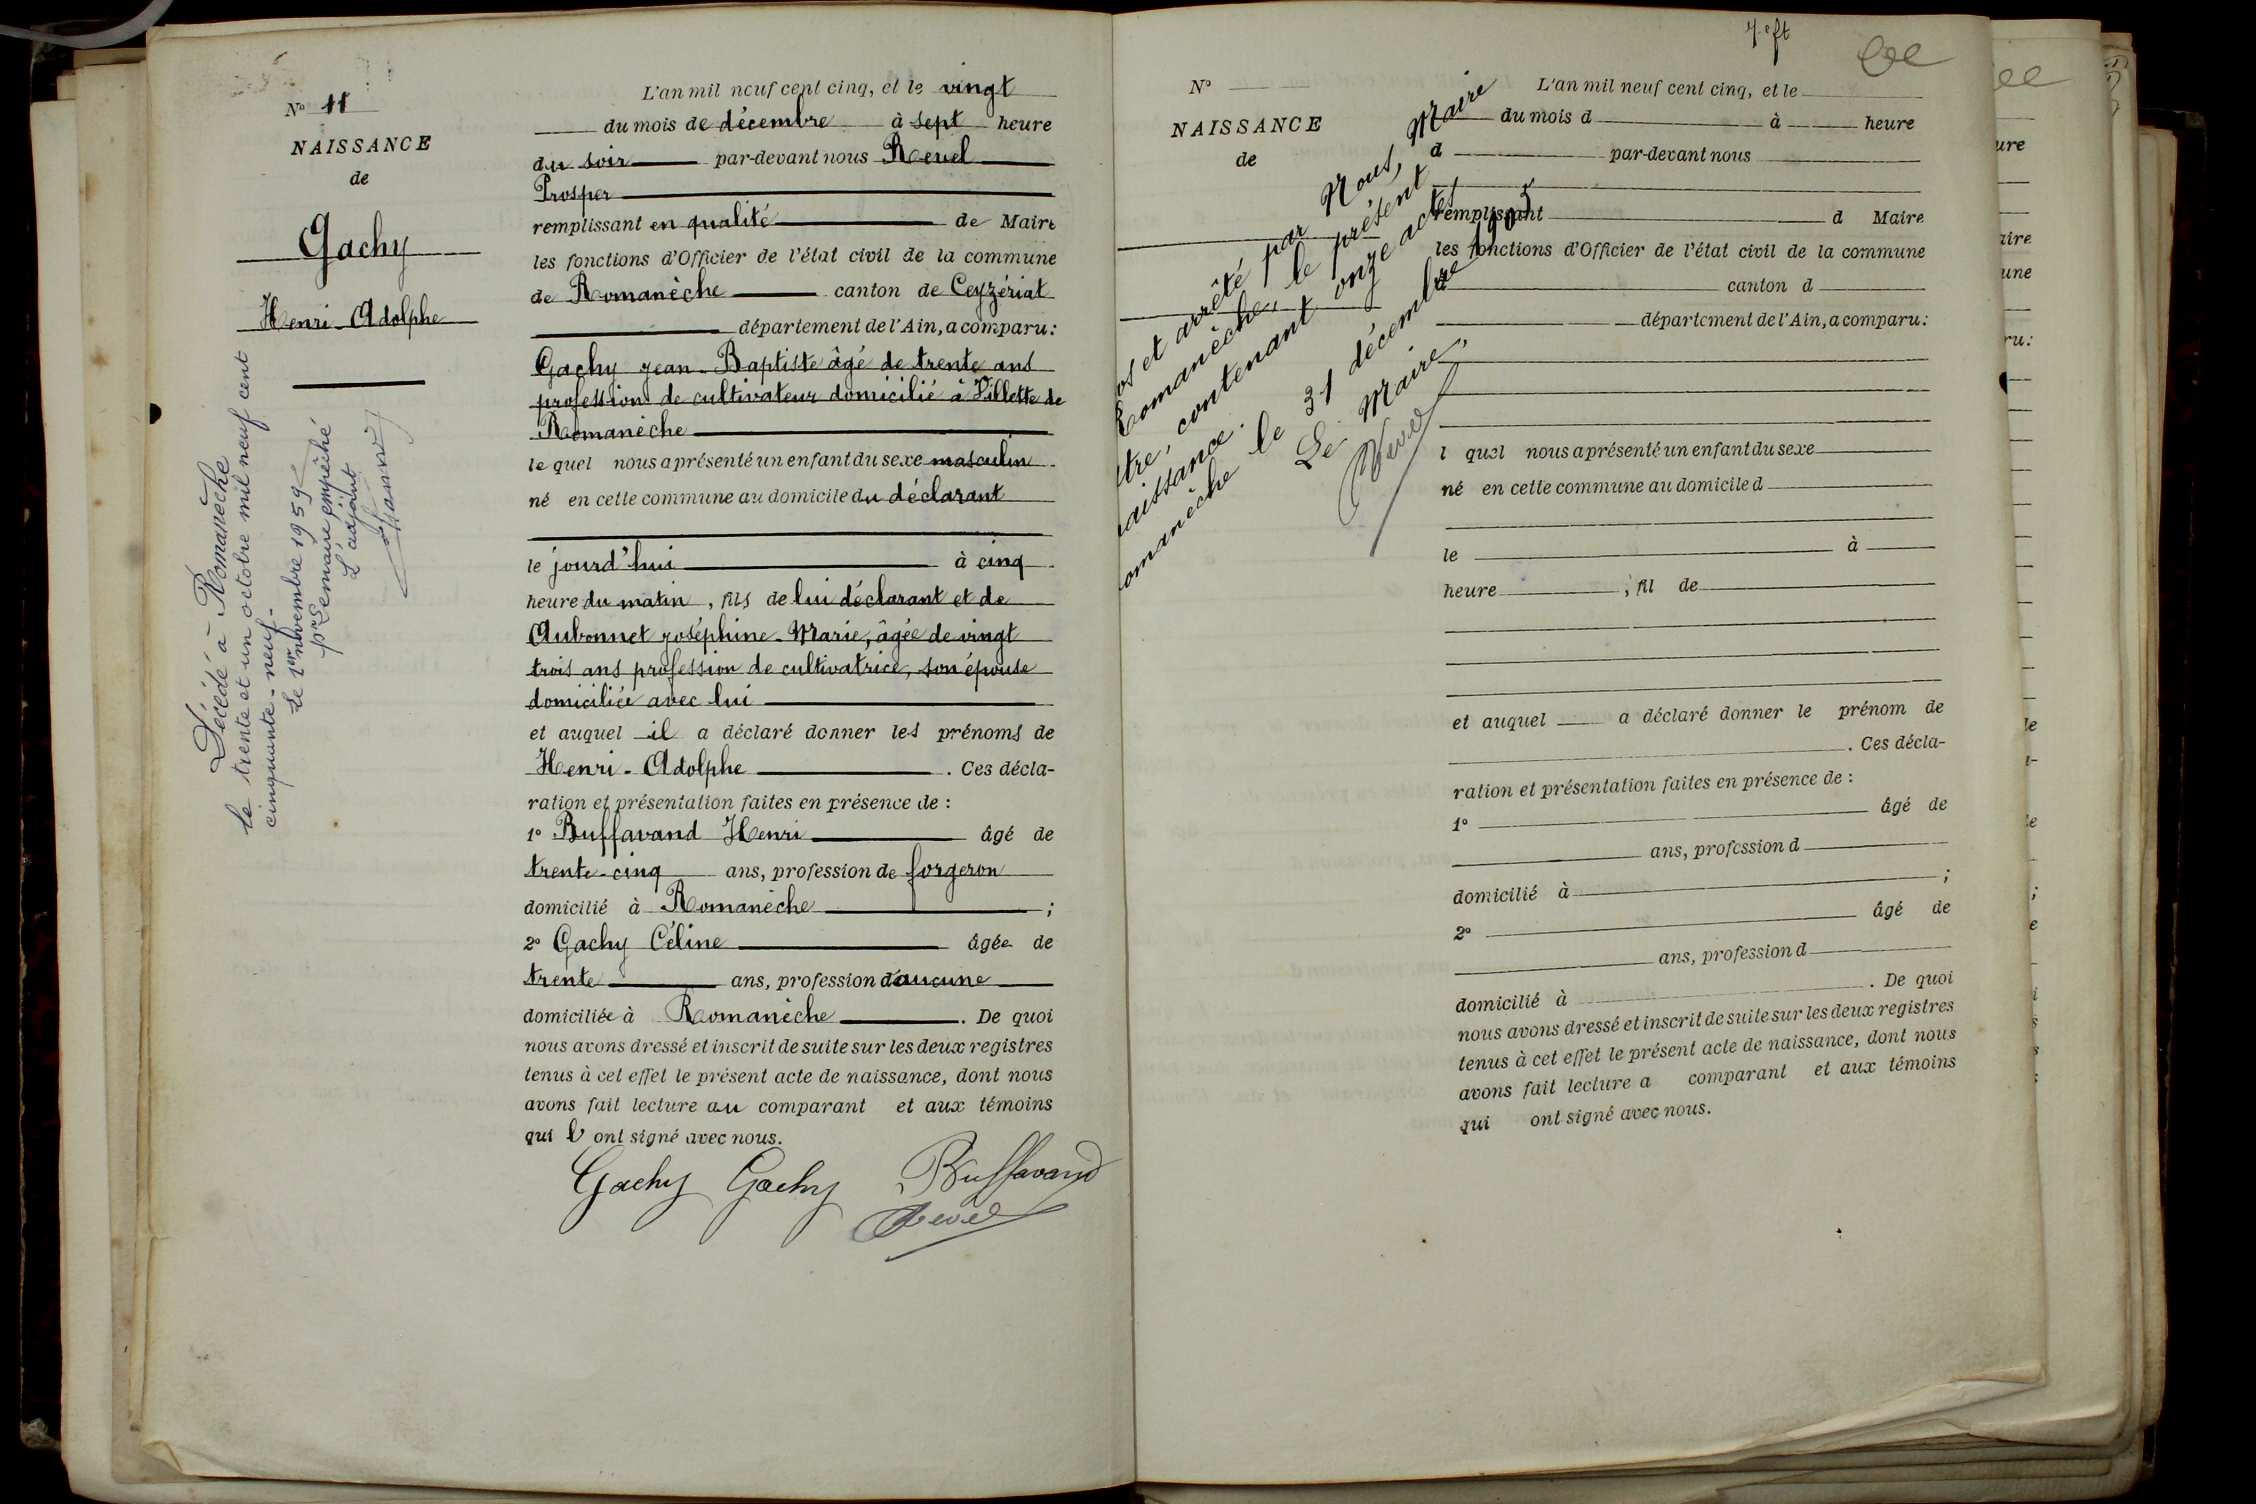 N° 11
NAISSANCE
de
Gachy
Henri-Adolphe
Décédé à Romanèche
le trente et un octobre mil neuf cent
cinquante-neuf.
Le 1er novembre 1959
pr Le maire empêché
L'adjoint
L'an mil neuf cent cinq, et le vingt
du mois de décembre à sept heure
du soir par-devant nous Revel
Prosper
remplissant en qualité de Maire
les fonctions d'Officier de l'état civil de la commune
de Romanèche canton de Ceyzériat
département de l'Ain, a comparu:
Gachy Jean-Baptiste âgé de trente ans
profession de cultivateur domicilié à Villette de
Romanèche
le quel nous a présenté un enfant du sexe masculin
né en cette commune au domicile du déclarant
le jourd'hui à cinq
heure du matin, fils de lui déclarant et de
Aubonnet Joséphine-Marie, âgée de vingt
trois ans profession de cultivatrice, son épouse
domiciliée avec lui
et auquel il a déclaré donner les prénoms de
Henri-Adolphe. Ces décla-
ration et présentation faites en présence de:
1° Buffavand Henri âgé de
trente-cinq ans, profession de forgeron
domicilié à Romanèche;
2° Gachy Céline âgée de
trente ans, profession d'aucune
domiciliée à Romanèche. De quoi
nous avons dressé et inscrit de suite sur les deux registres
tenus à cet effet le présent acte de naissance, dont nous
avons fait lecture au comparant et aux témoins
qui l' ont signé avec nous.
Gachy Gachy Buffavand
Revel
N°
NAISSANCE
de
os et arrêté par Nous, Maire
Romanèche, le présent
tre, contenant onze actes
aissance.
omanèche le 31 décembre 1905
Le Maire,
Revel
L'an mil neuf cent cinq, et le
du mois d à heure
d par-devant nous
remplissant d Maire
les fonctions d'Officier de l'état civil de la commune
d canton d
département de l'Ain, a comparu:
l quel nous a présenté un enfant du sexe
né en cette commune au domicile d
le à
heure, fil de
et auquel a déclaré donner le prénom de
. Ces décla-
ration et présentation faites en présence de:
1° âgé de
ans, profession d
domicilié à ;
2° âgé de
ans, profession d
domicilié à . De quoi
nous avons dressé et inscrit de suite sur les deux registres
tenus à cet effet le présent acte de naissance, dont nous
avons fait lecture a comparant et aux témoins
qui ont signé avec nous.